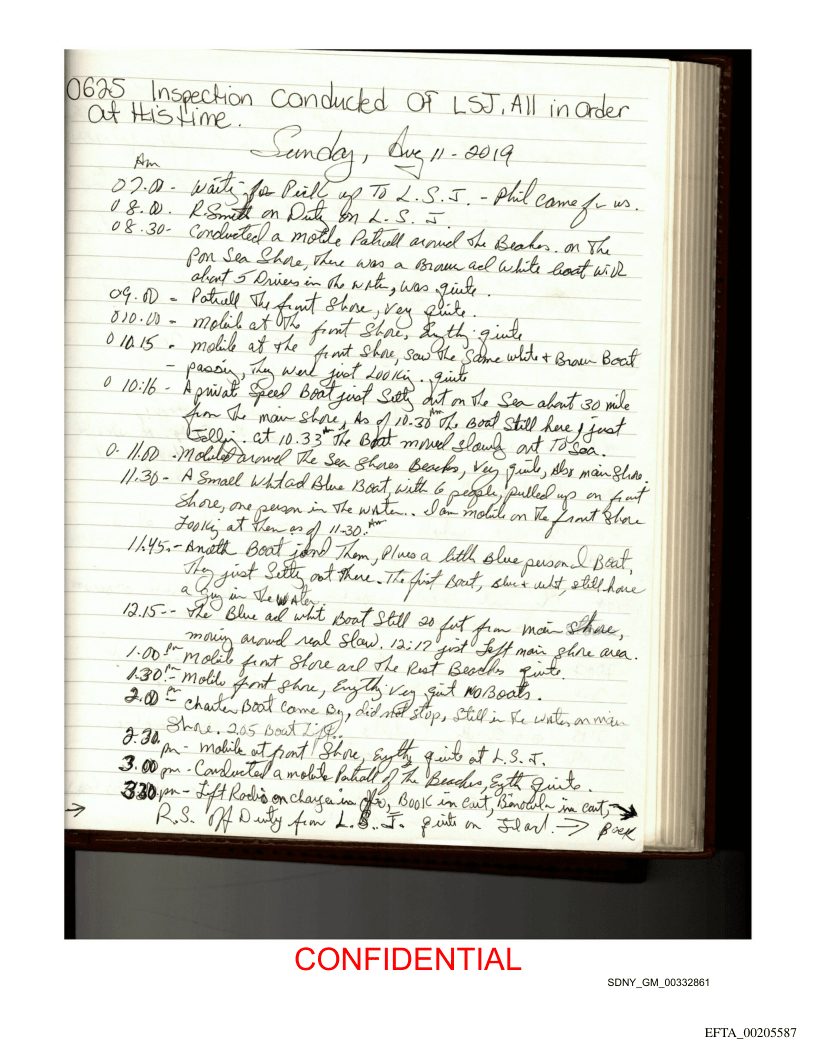 0625 Inspection Conducted Of LSJ, All in Order
at this time.
Sunday, Aug 11 - 2019
Am
07.00 - Waiti for Pick up To L.S.J. - Phil came for us.
08.00. R.Smith on Duty on L.S.J.
08.30 - Conducted a mobile Patroll around the Beaches. on The
Sea Shore, there was a Brown ad White boat with
about 5 Drivers in the water, was quite.
09.00 - Patroll The front Shore, Very quite.
010.00 - mobile at the front Shore, quite
010.15 - mobile at the front Shore, Saw the Same white + Brown Boat
- passing, They were just Looking. quite
0 10:16 - A privat Speed Boat just Setty out on the Sea about 30 mile
from the main Shore, As of 10.30 Am The Boat Still here, just
at 10.33 Am The Boat moved Slowly out To Sea.
0. 11.00 - Mobiled around The Sea Shores Beaches, Very quite, also main Shore.
11.30 - A Small Whit ad Blue Boat, with 6 people, pulled up on front
Shore, one person in the water.. I am mobile on the front Shore
Looking at them as of 11-30. Am
11.45. - Anoth Boat joind Them, Plues a little Blue personal Boat,
They just Setty out there. The first Boat, Blue + whit, still have
a guy in the WAter.
12.15 - - The Blue ad whit Boat Still 20 fut from main Shore,
moving around real Slow. 12:17 just Left main Shore area.
1.00 pm - Mobile front Shore and the Rest Beaches quite.
1.30 pm - Mobile front Shore, Very quit NO Boats.
2.00 pm - charter Boat Came By, did not stop, Still in the water on main
Shore. 2.05 Boat Left..
2.30 pm - mobile at front Shore, quite at L.S.J.
3.00 pm - Conducted a mobile Patroll of The Beaches, quite.
330. pm - Left Radio on charger in office, BOOK in Cart, Binocula in cart, →
→ R.S. Off Duty from L.S.J. quite on Island. → BACK
CONFIDENTIAL
SDNY_GM_00332861
EFTA_00205587